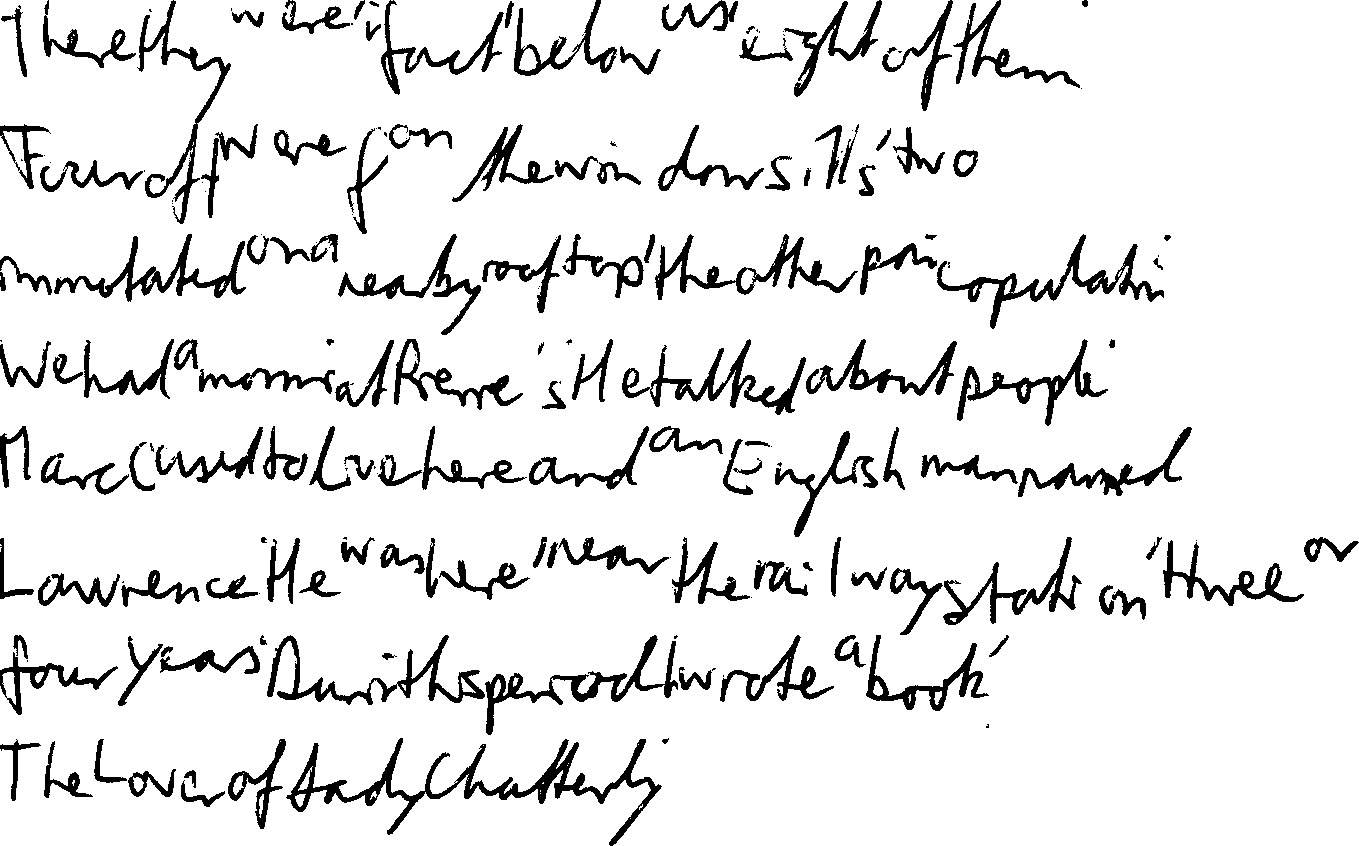 There they were, i fact, below us, eight of them
Four of were f on the windowsills, two
on a nearby rooftop, the other pair copulati
We had a morni at Pierre's. He talked about people
Marc C used to live here and an English man named
Lawrence. He was here, near the railway station, three or
four years. Duri this period I wrote a book,
The Lover of Lady Chatterly